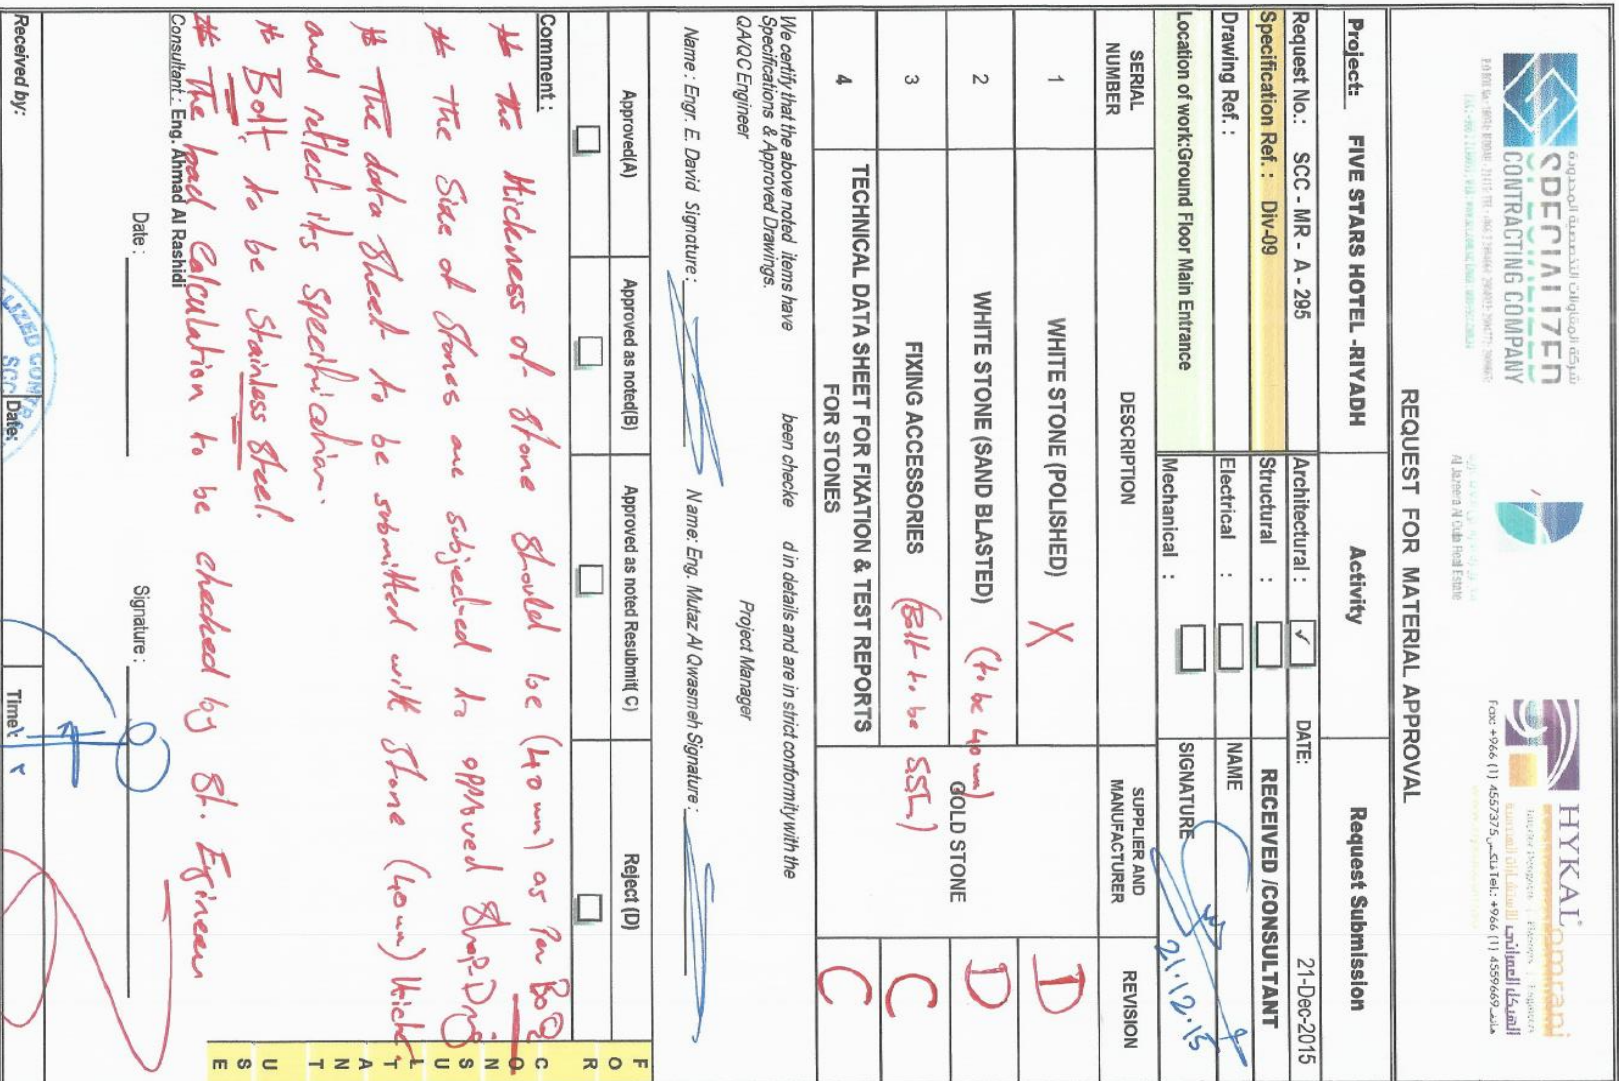 شركة المقاولات التخصصية المحدودة
SPECIALIZED
CONTRACTING COMPANY
Al Jazeera Al Oula Real Estate
HYKAL omrani
الهيكل العمراني
Fax: +966 (1) 4557375 فاكس Tel.: +966 (1) 4559669 هاتف
REQUEST FOR MATERIAL APPROVAL
Project: FIVE STARS HOTEL -RIYADH Activity Request Submission
Request No.: SCC - MR - A - 295 Architectural : ✓ DATE: 21-Dec-2015
Specification Ref. : Div-09 Structural : RECEIVED /CONSULTANT
Drawing Ref. : Electrical : NAME
Location of work:Ground Floor Main Entrance Mechanical : SIGNATURE 21.12.15
SERIAL NUMBER DESCRIPTION SUPPLIER AND MANUFACTURER REVISION
1 WHITE STONE (POLISHED) X D
2 WHITE STONE (SAND BLASTED) (to be 40 mm) GOLD STONE D
3 FIXING ACCESSORIES (Bolt to be S.STL) C
4 TECHNICAL DATA SHEET FOR FIXATION & TEST REPORTS FOR STONES C
We certify that the above noted items have been checke d in details and are in strict conformity with the
Specifications & Approved Drawings.
QA/QC Engineer Project Manager
Name : Engr. E. David Signature : Name: Eng. Mutaz Al Qwasmeh Signature :
Approved(A) Approved as noted(B) Approved as noted Resubmit( C) Reject (D)
FOR CONSULTANT USE
Comment :
# The thickness of stone should be (40 mm) as Per BoQ
# The Size of Stones are subjected to approved Shop-Drg
# The data Sheet to be submitted with Stone (40mm) thick.
and reflect its specification.
# Bolt to be Stainless Steel.
# The load Calculation to be checked by St. Engineer
Consultant : Eng. Ahmad Al Rashidi
Date : Signature :
Received by: SCC Date: Time: